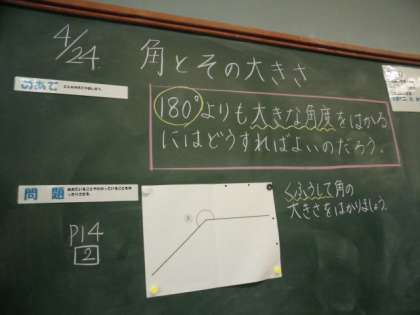 4/24
角とその大きさ
めあて
180°よりも大きな角度をはかる
にはどうすればよいのだろう。
問題
P14
2
くふうして角の
大きさをはかりましょう。